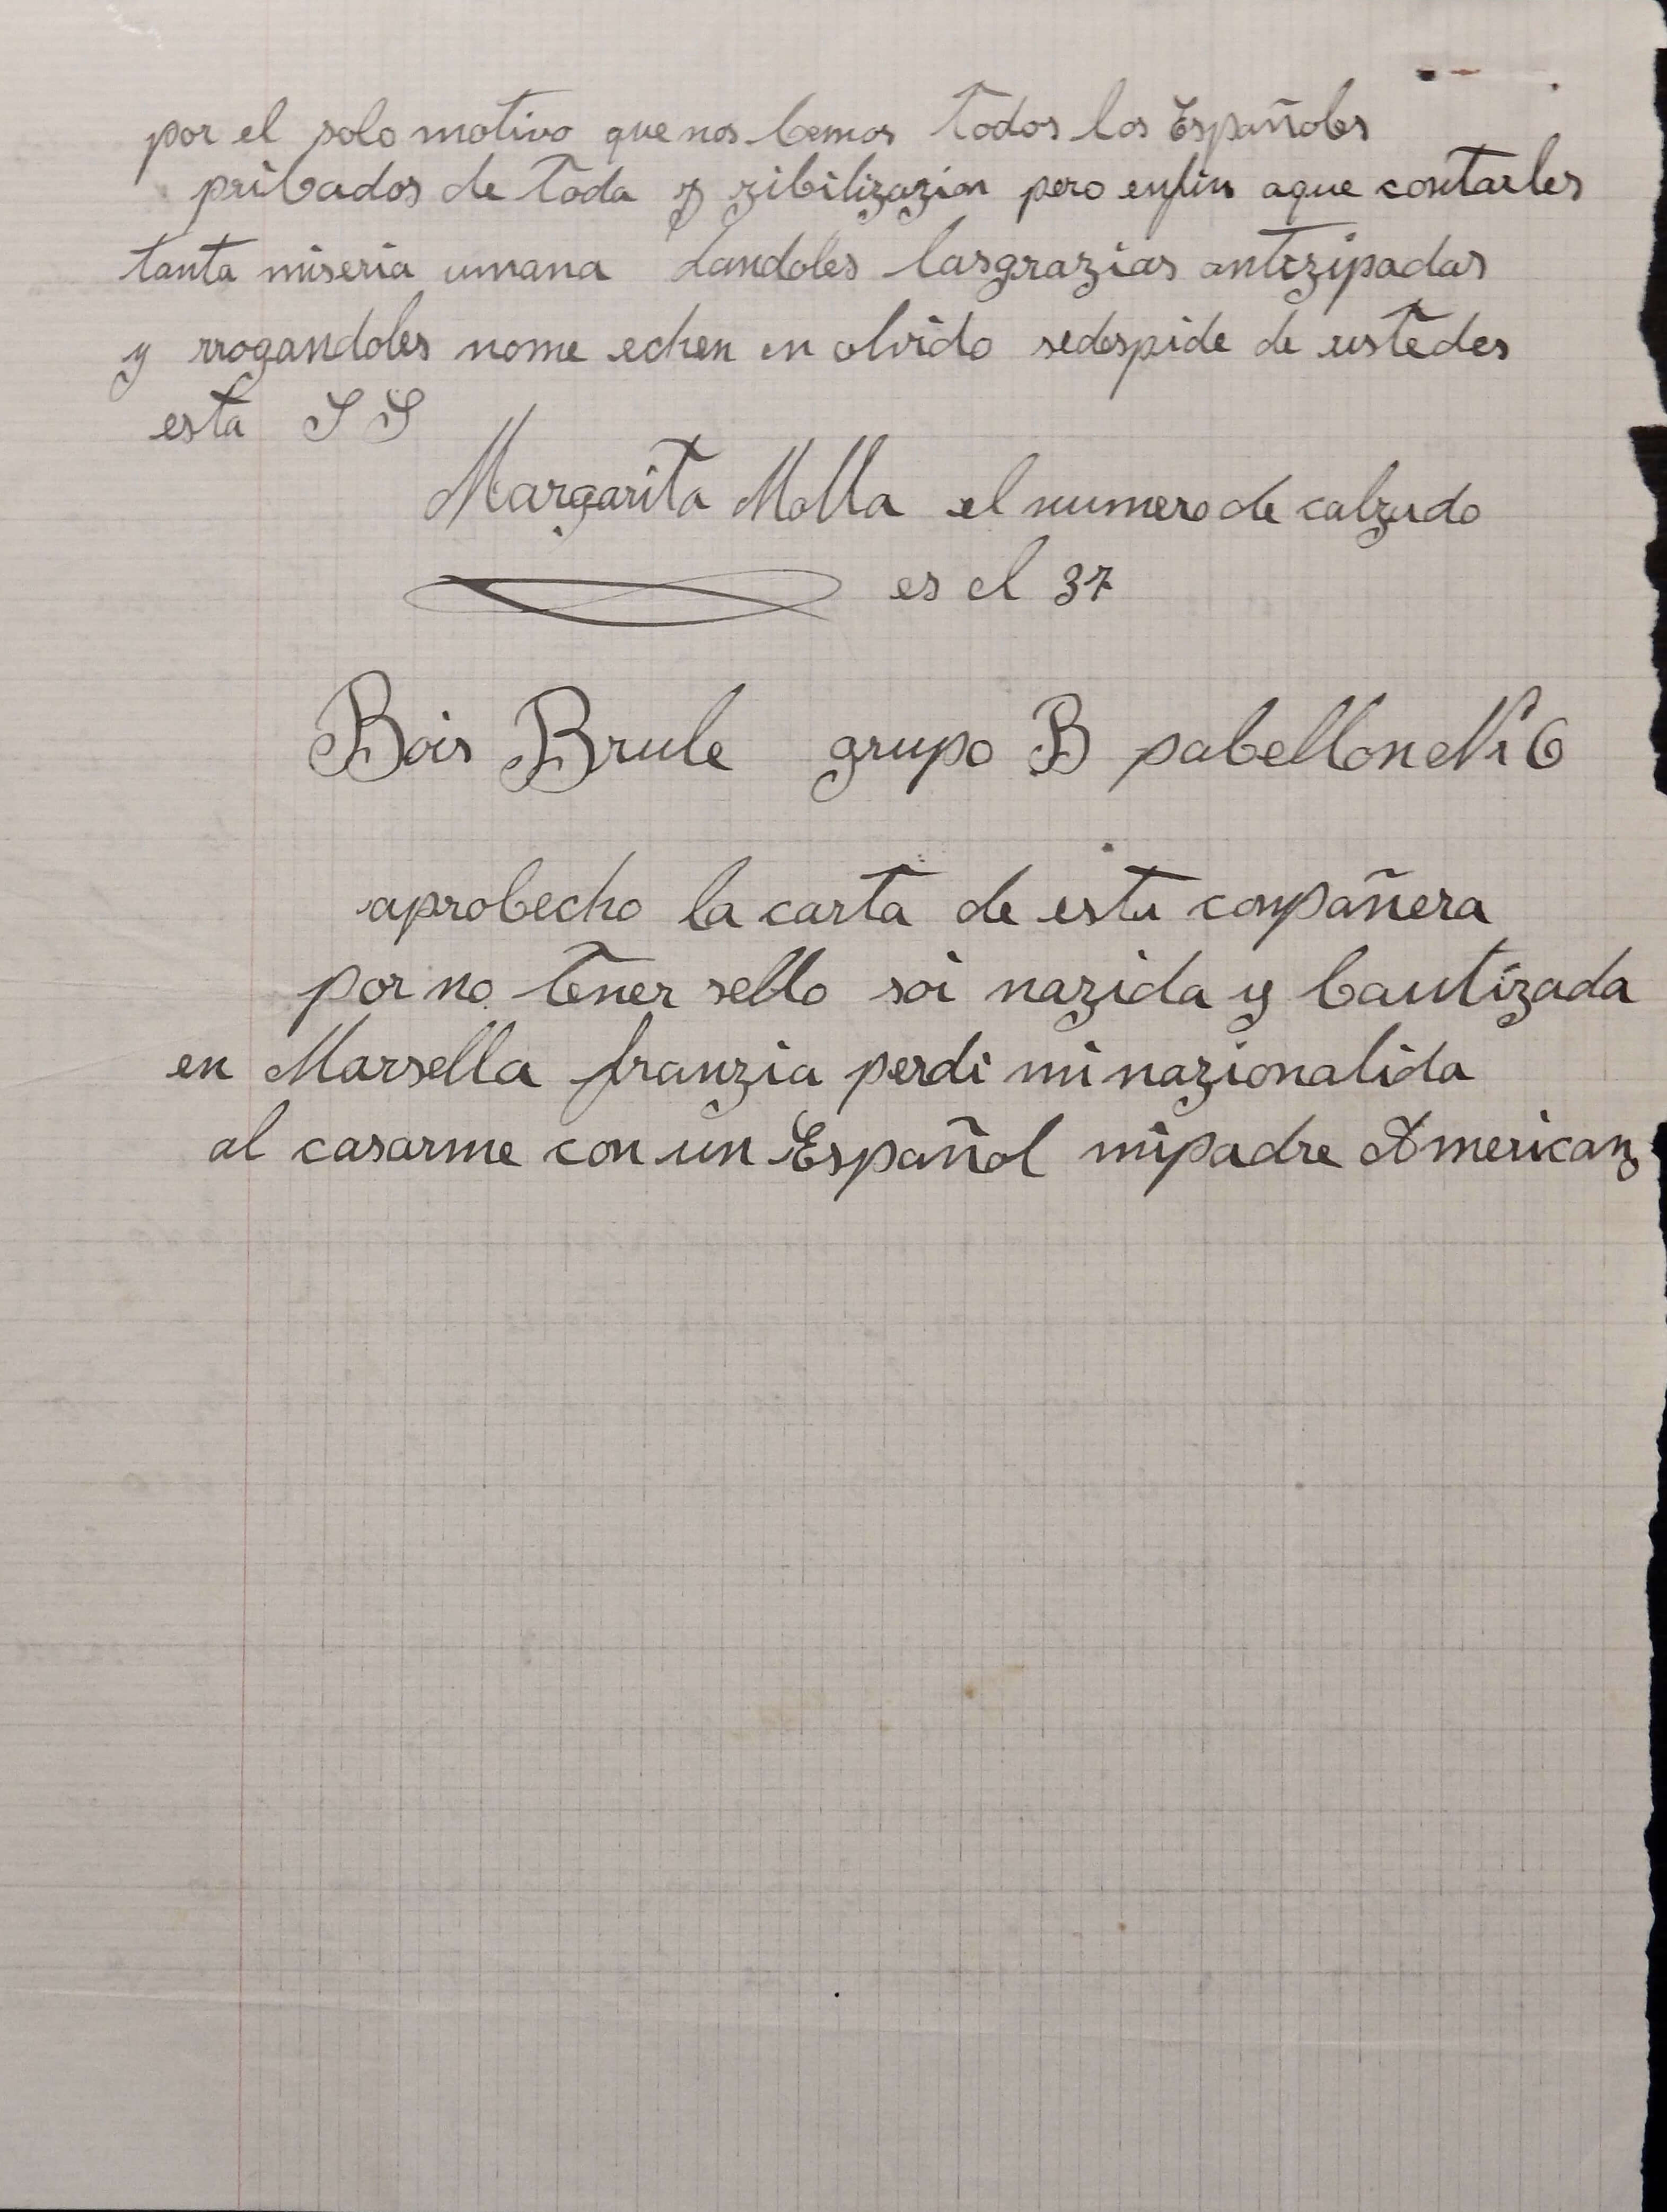 por el solo motivo que nos bemos todos los Españoles
pribados de toda y zibilizazion pero enfin aque contarles
tanta miseria umana dandoles lasgrazias antizipadas
y rrogandoles nome echen en olvido sedespide de ustedes
esta S S
Margarita Molla el numero de calzado
es el 37
Bois Brule grupo B pabellon Nº 6
aprobecho la carta de esta conpañera
por no tener sello soi nazida y bautizada
en Marsella franzia perdi mi nazionalida
al casarme con un Español mipadre Americano